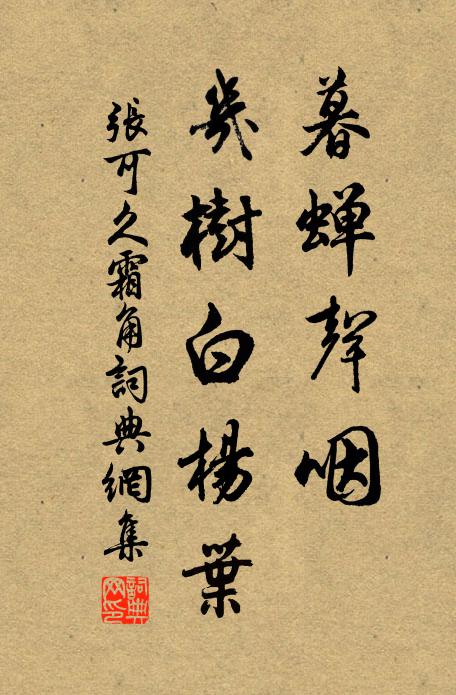 暮蟬聲咽
幾樹白楊葉
張可久霜角詞典網集
詞典網印